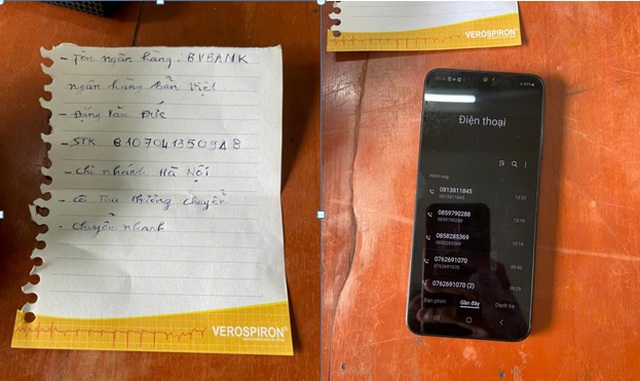 - Tên ngân hàng. BVBANK
ngân hàng bản Việt
- Đặng Văn Đức
- STK 8107041350948
- Chi nhánh Hà Nội
- Cô Thu Phương chuyển
- chuyển nhanh
VEROSPIRON®
VEROSPIRON®
Điện thoại
Hôm nay
0813811845
0813811845
13:22
0859790288
0859790288
13:18
0858285369
0858285369
13:14
0762691070
0762691070
09:43
0762691070 (2)
09:29
Bàn phím
Gần đây
Danh bạ